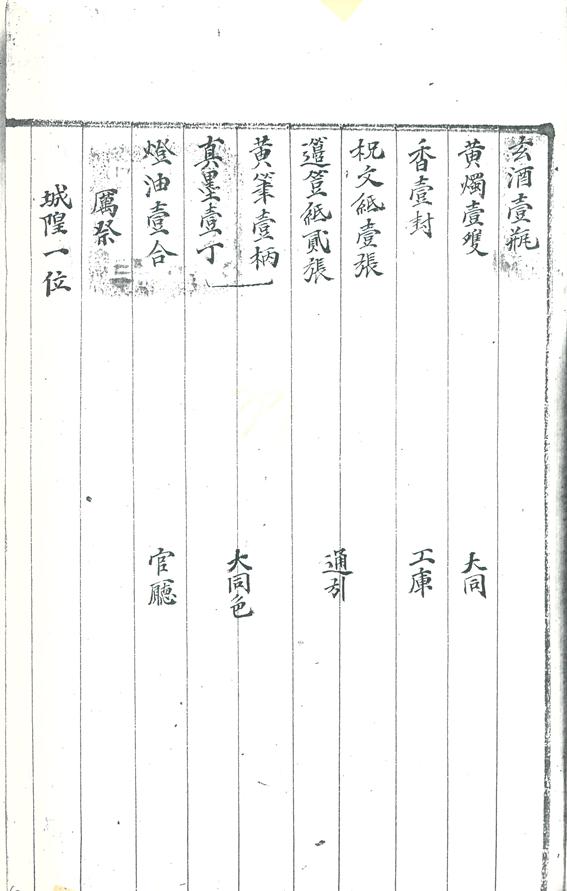 玄酒壹瓶
黃燭壹雙 大同
香壹封 工庫
祝文紙壹張
籩豆紙貳張 通引
黃筆壹柄
真墨壹丁 大同色
燈油壹合 官廳
厲祭
城隍一位